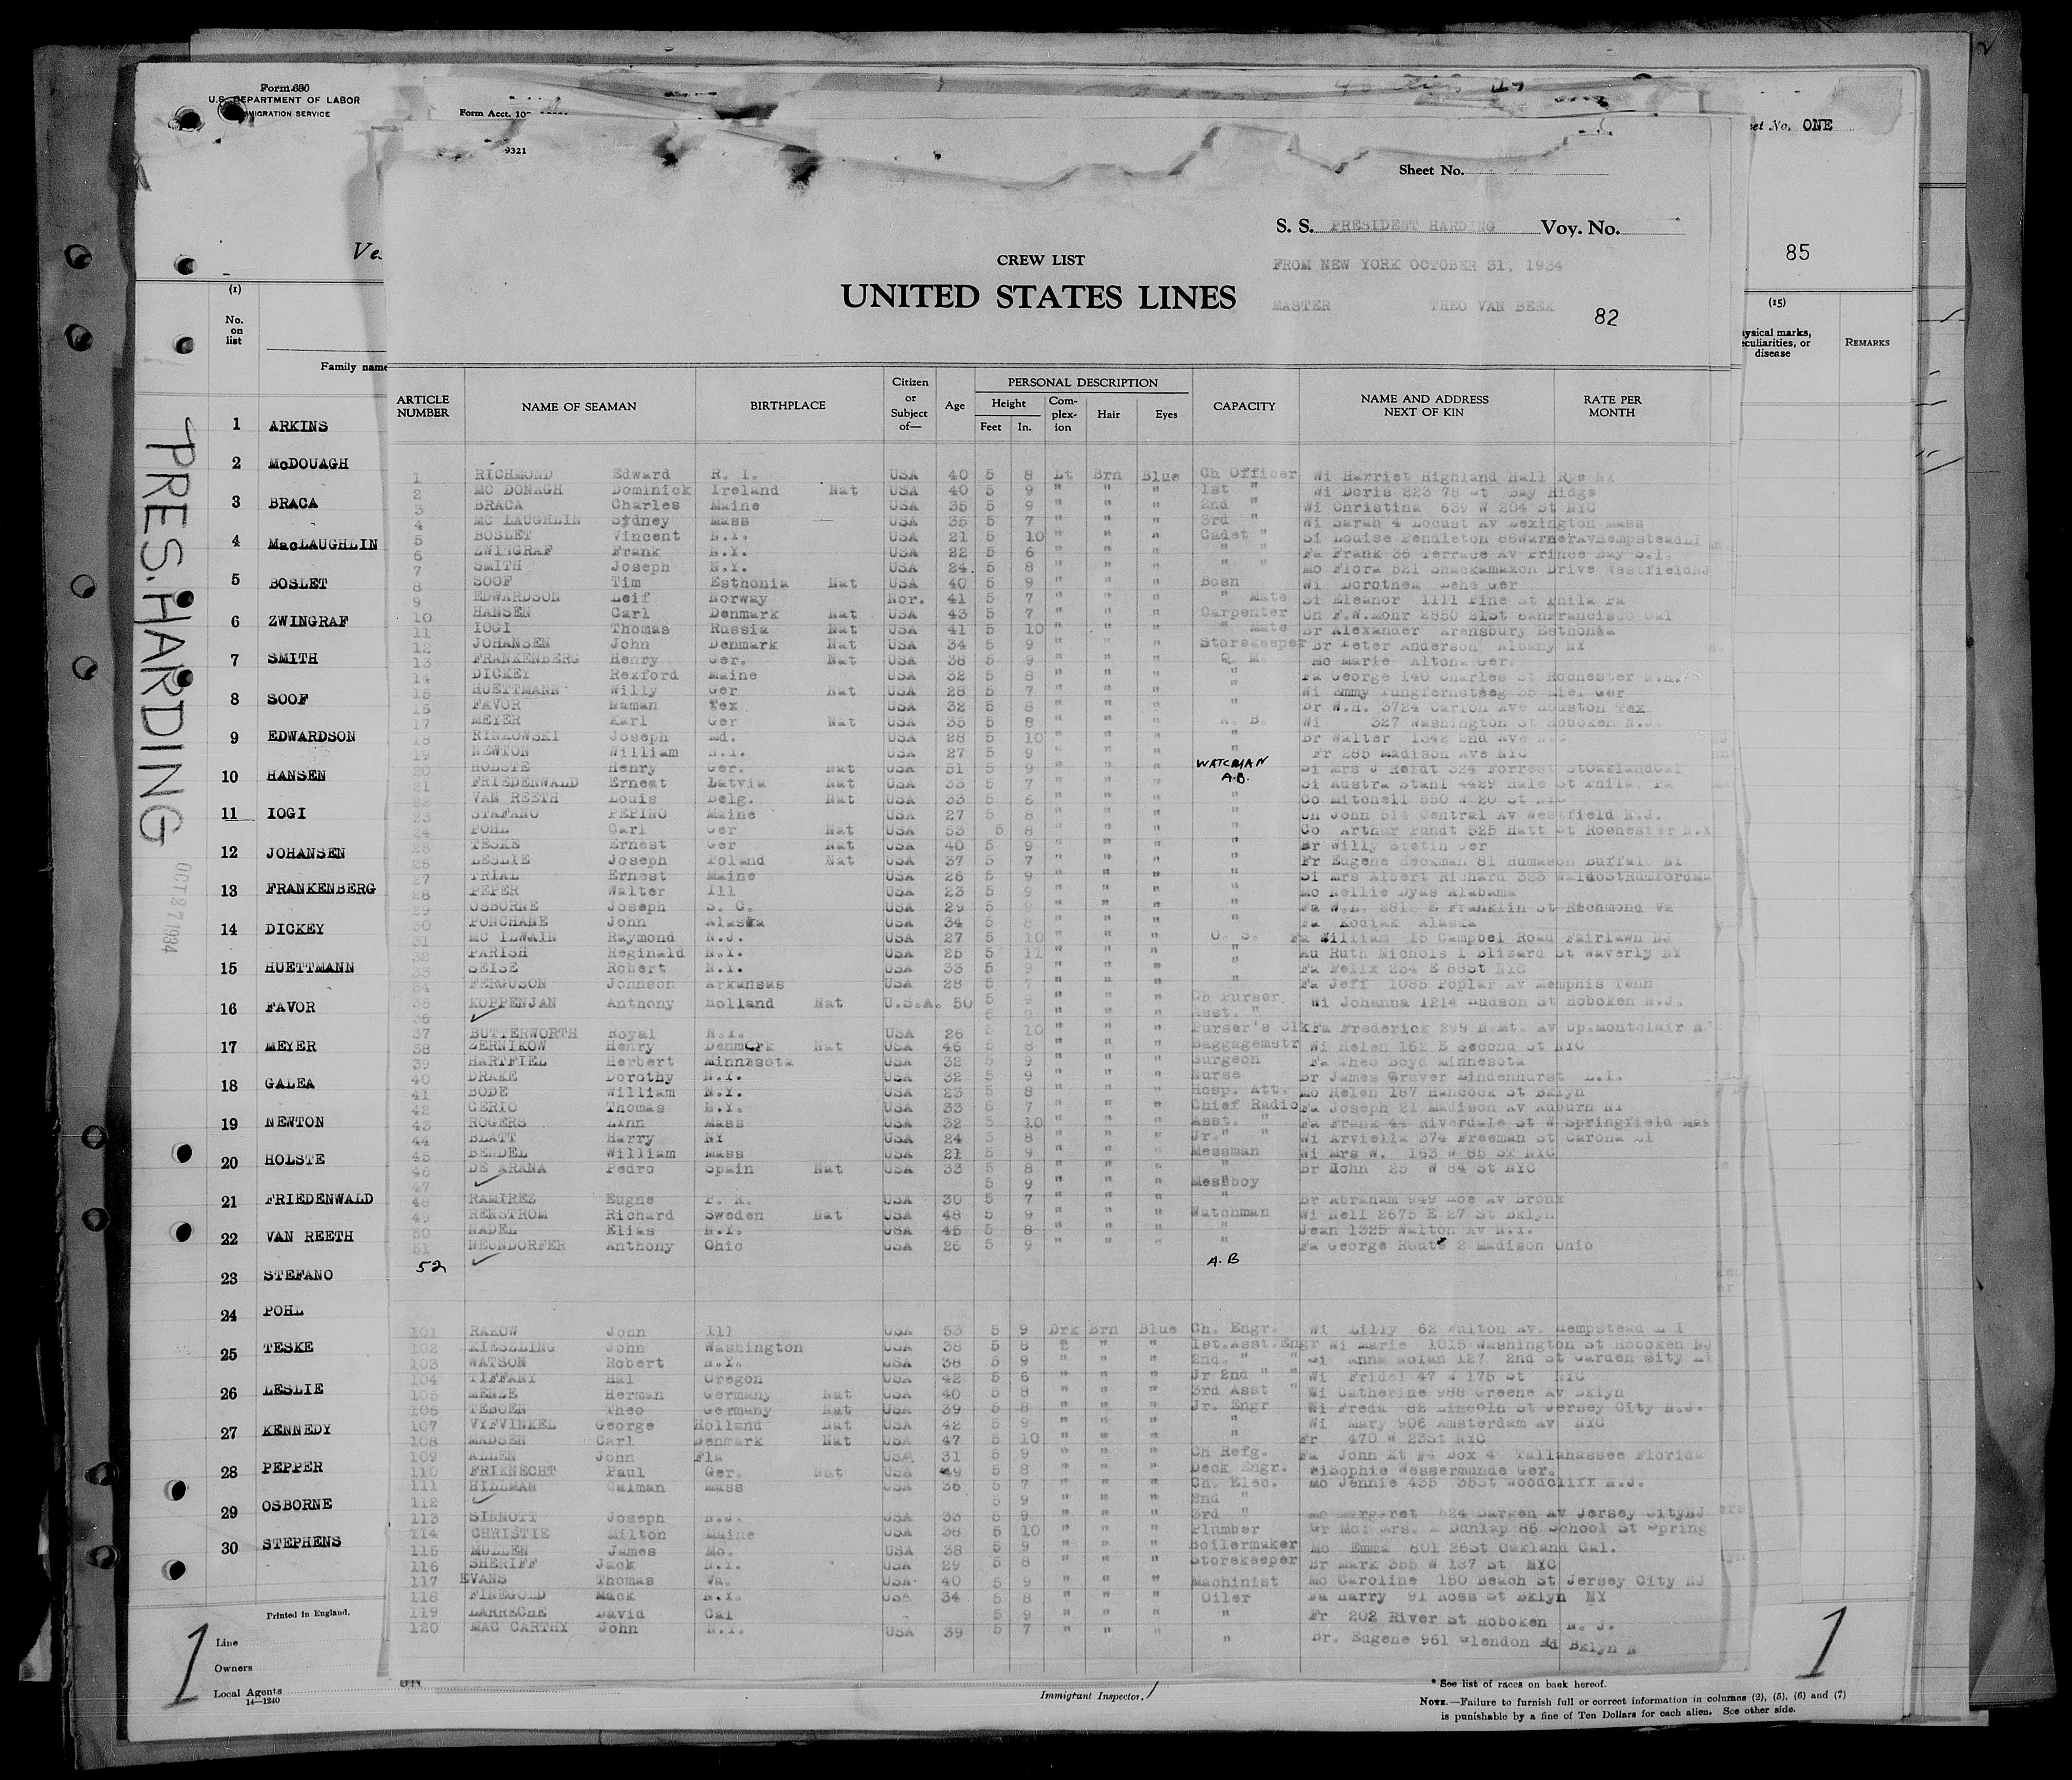 Form 680
U.S. DEPARTMENT OF LABOR
IMMIGRATION SERVICE
Form Acct. 10
9321
Sheet No.
et No. ONE
S. S. PRESIDENT HARDING Voy. No.
CREW LIST
FROM NEW YORK OCTOBER 31, 1934
UNITED STATES LINES
MASTER THEO VAN BEEK
82
85
Ves
(1)
No. on list
Family name
(15)
ysical marks, eculiarities, or disease
REMARKS
PRES. HARDING
OCT 27 1934
1 ARKINS
2 McDOUAGH
3 BRACA
4 MacLAUGHLIN
5 BOSLET
6 ZWINGRAF
7 SMITH
8 SOOF
9 EDWARDSON
10 HANSEN
11 IOGI
12 JOHANSEN
13 FRANKENBERG
14 DICKEY
15 HUETTMANN
16 FAVOR
17 MEYER
18 GALEA
19 NEWTON
20 HOLSTE
21 FRIEDENWALD
22 VAN REETH
23 STEFANO
24 POHL
25 TESKE
26 LESLIE
27 KENNEDY
28 PEPPER
29 OSBORNE
30 STEPHENS
ARTICLE NUMBER NAME OF SEAMAN BIRTHPLACE Citizen or Subject of— Age PERSONAL DESCRIPTION Height Feet In. Complexion Hair Eyes CAPACITY NAME AND ADDRESS NEXT OF KIN RATE PER MONTH
1 RICHMOND Edward R. I. USA 40 5 8 Lt Brn Blue Ch Officer Wi Harriet Highland Hall Rye NY
2 MC DONAGH Dominick Ireland Nat USA 40 5 9 " " " 1st " Wi Doris 223 78 St Bay Ridge
3 BRACA Charles Maine USA 35 5 9 " " " 2nd " Wi Christina 639 W 204 St NYC
4 MC LAUGHLIN Sydney Mass USA 35 5 7 " " " 3rd " Wi Sarah 4 Locust Av Lexington Mass
5 BOSLET Vincent N.Y. USA 21 5 10 " " " Cadet " Si Louise Pendleton 86WarnerAvHempsteadLI
6 ZWINGRAF Frank N.Y. USA 22 5 6 " " " " " Fa Frank 36 Terrace Av Prince Bay S.I.
7 SMITH Joseph N.Y. USA 24 5 8 " " " " " Mo Flora 521 Shackamaxon Drive WestfieldNJ
8 SOOF Tim Esthonia Nat USA 40 5 9 " " " Bosn Wi Dorothea Lehe Ger
9 EDWARDSON Leif Norway Nor. 41 5 7 " " " " Mate Si Eleanor 1111 Pine St Phila Pa
10 HANSEN Carl Denmark Nat USA 43 5 7 " " " Carpenter Un F.W.Mohr 2850 21st SanFrancisco Cal
11 IOGI Thomas Russia Nat USA 41 5 10 " " " " Mate Br Alexander Arensbury Esthonia
12 JOHANSEN John Denmark Nat USA 34 5 9 " " " Storekeeper Br Peter Anderson Albany NY
13 FRANKENBERG Henry Ger. Nat USA 38 5 9 " " " Q. M. Mo Marie Altona Ger.
14 DICKEY Rexford Maine USA 32 5 8 " " " " Fa George 140 Charles St Rochester N.H.
15 HUETTMANN Willy Ger Nat USA 28 5 7 " " " " Wi Emmy Jungfernsteeg 35 Kiel Ger
16 FAVOR Naman Tex USA 32 5 8 " " " " Br W.H. 3724 Carlon Ave Houston Tex
17 MEYER Karl Ger Nat USA 35 5 8 " " " A. B. Wi 327 Washington St Hoboken N.J.
18 RINKOWSKI Joseph Md. USA 28 5 10 " " " " Br Walter 1342 2nd Ave NYC
19 NEWTON William N.Y. USA 27 5 9 " " " " Fr 285 Madison Ave NYC
20 HOLSTE Henry Ger. Nat USA 51 5 9 " " " WATCHMAN Si Mrs J Heidt 324 Forrest StOaklandCal
21 FRIEDENWALD Ernest Latvia Nat USA 33 5 7 " " " A.B. Si Austra Stahl 4429 Hale St Phila. Pa
22 VAN REETH Louis Belg. Nat USA 33 5 6 " " " " Co Mitchell 550 W 20 St NYC
23 STAFANO PEPINO Maine USA 27 5 8 " " " " Un John 514 Central Av Westfield N.J.
24 POHL Carl Ger Nat USA 53 5 8 " " " " Co Arthur Pundt 525 Hatt St Rochester N.Y
25 TESKE Ernest Ger Nat USA 40 5 9 " " " " Br Willy Stetin Ger
26 LESLIE Joseph Poland Nat USA 37 5 7 " " " " Fr Eugene Heckman 81 Humason Buffalo NY
27 TRIAL Ernest Maine USA 26 5 9 " " " " Si Mrs Albert Richard 323 WaldoStRumfordMa
28 PEPER Walter Ill USA 23 5 9 " " " " Mo Nellie Dyas Alabama
29 OSBORNE Joseph S. C. USA 29 5 9 " " " " Fa W.L. 2812 E Franklin St Richmond Va
30 PONCHANE John Alaska USA 34 5 8 " " " " Fa Kodiak Alaska
31 MC ILWAIN Raymond N.J. USA 27 5 10 " " " O. S. Fa William 15 Campbel Road Fairlawn NJ
32 PARISH Reginald N.Y. USA 25 5 11 " " " " Au Ruth Nichols 1 Blizard St Waverly NY
33 SEISE Robert N.Y. USA 33 5 9 " " " " Fa Felix 234 E 88St NYC
34 FERGUSON Johnson Arkansas USA 28 5 7 " " " " Fa Jeff 1085 Poplar Av Memphis Tenn
35 KOPPENJAN Anthony Holland Nat U.S.A. 50 5 9 " " " Ch Purser Wi Johanna 1214 Hudson St Hoboken N.J.
36 5 9 " " " Asst. "
37 BUTTERWORTH Royal N.Y. USA 26 5 10 " " " Purser's Clk Fa Frederick 299 N.Mt. Av Up.Montclair N
38 ZERNIKOW Henry Denmark Nat USA 46 5 8 " " " Baggagemstr Wi Helen 162 E Second St NYC
39 HARTFIEL Herbert Minnesota USA 32 5 9 " " " Surgeon Fa Theo Boyd Minnesota
40 DRAKE Dorothy N.Y. USA 32 5 9 " " " Nurse Br James Gruver Lindenhurst L.I.
41 BODE William N.Y. USA 23 5 8 " " " Hosp. Att. Mo Helen 187 Hancock St Bklyn
42 CERIO Thomas N.Y. USA 33 5 7 " " " Chief Radio Fa Joseph 21 Madison Av Auburn NY
43 ROGERS Lynn Mass USA 32 5 10 " " " Asst. " Fa Frank 44 Riverdale St W Springfield Mas
44 BLATT Harry NY USA 24 5 8 " " " Jr." " Wi Arviella 374 Freeman St Carona LI
45 BENDEL William Mass USA 21 5 9 " " " Messman Wi Mrs W. 163 W 85 ST NYC
46 DE ARANA Pedro Spain Nat USA 33 5 8 " " " " Br John 25 W 84 St NYC
47 5 9 " " " Messboy
48 RAMIREZ Eugne P. R. USA 30 5 7 " " " " Br Abraham 949 Loe Av Bronx
49 RENSTROM Richard Sweden Nat USA 48 5 9 " " " Watchman Wi Nell 2675 E 27 St Bklyn
50 NADEL Elias N.Y. USA 45 5 8 " " " " Jean 1325 Walton Av N.Y.
51 NEUNDORFER Anthony Ohio USA 26 5 9 " " " " Fa George Route 2 Madison Ohio
52 A.B
101 RAKOW John Ill USA 53 5 9 Drk Brn Blue Ch. Engr. Wi Lilly 62 Fulton Av. Hempstead L I
102 KIESZLING John Washington USA 38 5 8 " " " 1st.Asst.Engr Wi Marie 1015 Washington St Hoboken NJ
103 WATSON Robert N.Y. USA 38 5 9 " " " 2nd. " " Si Anna Nolan 127 2nd St Garden City LI
104 TIFFANY Hal Oregon USA 42 5 6 " " " Jr 2nd " " Wi Fridel 47 W 175 St NYC
105 MENZE Herman Germany Nat USA 40 5 8 " " " 3rd Asst " Wi Catherine 988 Greene Av Bklyn
106 TEBOEN Theo Germany Nat USA 39 5 8 " " " Jr. Engr Wi Freda 82 Lincoln St Jersey City N.J.
107 VYFVINKEL George Holland Nat USA 42 5 9 " " " " Wi Mary 906 Amsterdam Av NYC
108 MADSEN Carl Denmark Nat USA 47 5 10 " " " " Fr 470 W 23St NYC
109 ALLEN John Fla USA 31 5 9 " " " Ch Refg. Fa John Rt #4 Box 4 Tallahassee Florida
110 FRIKNECHT Paul Ger. Nat USA 49 5 8 " " " Deck Engr. WiSophie Wessermunde Ger.
111 HILLMAN Calman Mass USA 36 5 7 " " " Ch. Elec. Mo Jennie 435 35St Woodcliff N.J.
112 5 9 " " " 2nd "
113 SINNOTT Joseph N.J. USA 33 5 9 " " " 3rd " Mo Margaret 524 Bargen Av Jersey CityNJ
114 CHRISTIE Milton Maine USA 38 5 10 " " " Plumber Gr Mo: Mrs. L Dunlap 86 School St Spring
115 MULLEN James Mo. USA 38 5 9 " " " Boilermaker Mo Emma 801 26St Oakland Cal.
116 SHERIFF Jack N.Y. USA 29 5 8 " " " Storekeeper Br Mark 355 W 187 St NYC
117 EVANS Thomas Va. USA 40 5 9 " " " Machinist Mo Caroline 150 Beach St Jersey City NJ
118 FINEGOLD Mack N.Y. USA 34 5 8 " " " Oiler Fa Harry 91 Ross St Bklyn NY
119 LARRECHE David Cal 5 9 " " " " Fr 202 River St Hoboken N. J.
120 MAC CARTHY John N.Y. USA 39 5 7 " " " " Br. Eugene 961 Glendon Rd Bklyn N
Printed in England.
1
Line
Owners
Local Agents
14—1240
Immigrant Inspector.
1
* See list of races on back hereof.
NOTE.—Failure to furnish full or correct information in columns (2), (5), (6) and (7)
is punishable by a fine of Ten Dollars for each alien. See other side.